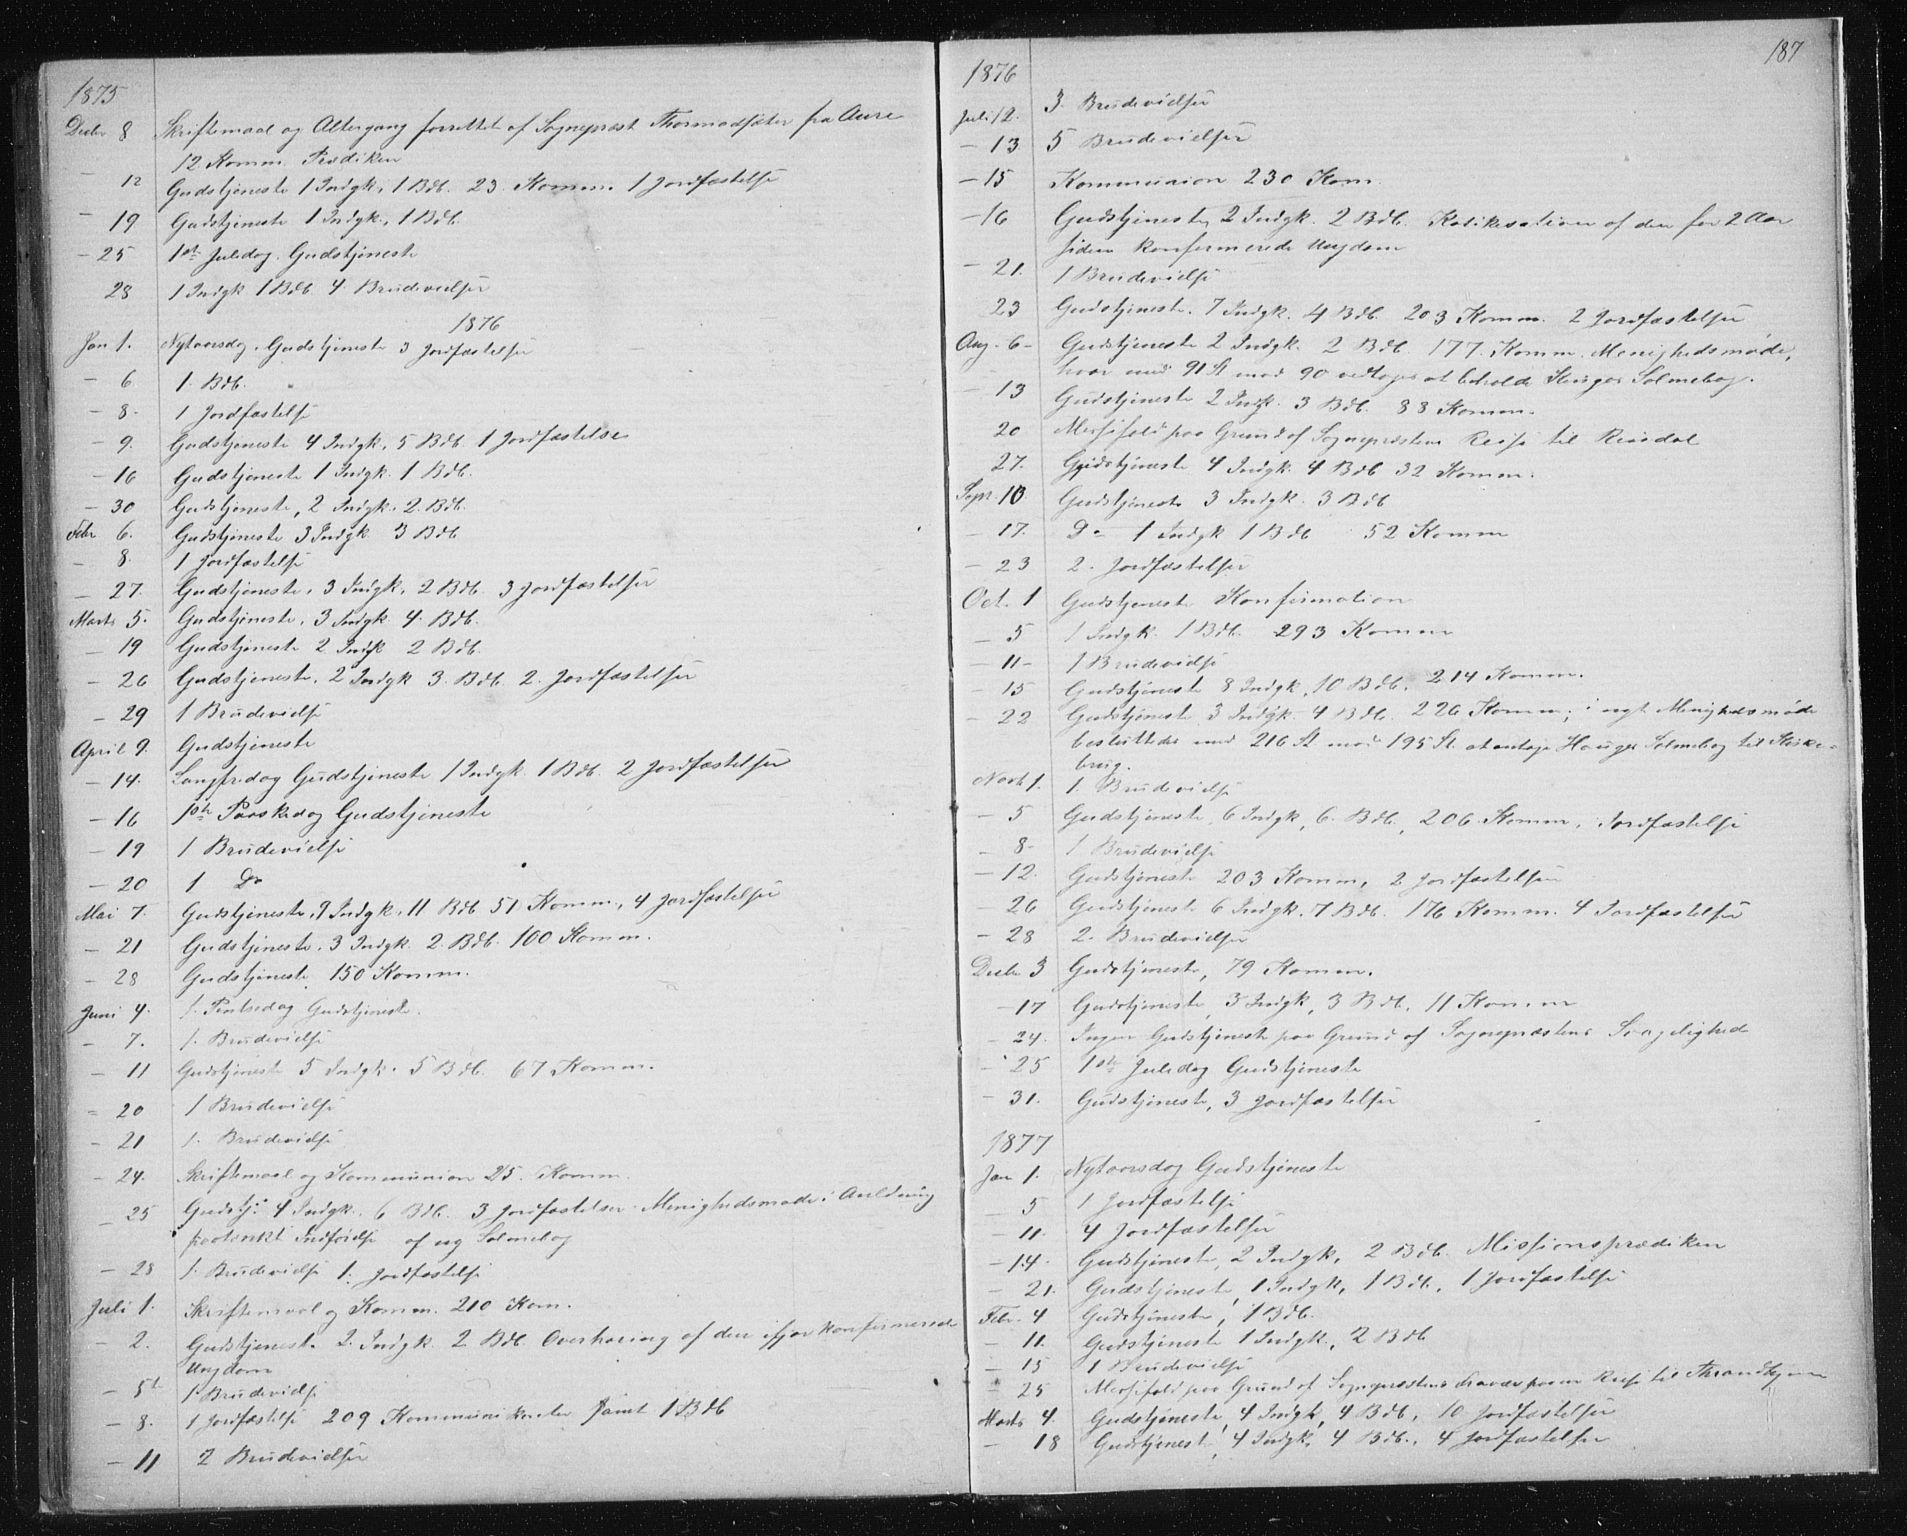 1875
Decbr 8 Skriftemaal og Altergang forrettet af Sognepræst Thormodsæter fra Aure
12 Komm. Prædiken
— 12 Gudstjeneste 1 Indgk. 1 Bdb. 23 Komm. 1 Jordfæstelse
— 19 Gudstjeneste 1 Indgk, 1 Bdb.
— 25 1ste Juledag. Gudstjeneste
28 1 Indgk 1 Bdb. 4 Brudevielser
1876
Jan 1. Nytaarsdag. Gudstjeneste 3 Jordfæstelser
— 6 1. Bdb.
— 8. 1 Jordfæstelse
— 9. Gudstjeneste 4 Indgk, 5 Bdb. 1 Jordfæstelse
— 16 Gudstjeneste 1 Indgk. 1 Bdb.
— 30 Gudstjeneste, 2 Indgk. 2. Bdb.
Febr 6. Gudstjeneste 3 Indgk 3 Bdb
— 8. 1 Jordfæstelse
— 27. Gudstjeneste, 3 Indgk. 2 Bdb. 3 Jordfæstelser
Marts 5. Gudstjeneste. 3 Indgk 4. Bdb.
— 19 Gudstjeneste 2 Indgk 2 Bdb.
— 26 Gudstjeneste. 2 Indgk 3. Bdb 2. Jordfæstelser
— 29 1 Brudevielse
April 9. Gudstjeneste
— 14. Langfredag Gudstjeneste 1 Indgk. 1 Bdb. 2 Jordfæstelser
— 16 1ste Paaskedag Gudstjeneste
— 19 1 Brudevielse
— 20 1 Do
Mai 7. Gudstjeneste, 9 Indgk, 11 Bdb 51 Komm., 4 Jordfæstelser
— 21 Gudstjeneste. 3 Indgk. 2. Bdb. 100 Komm.
— 28 Gudstjeneste 150 Komm.
Juni 4. 1. Pintsedag Gudstjeneste.
— 7. 1. Brudevielse
— 11 Gudstjeneste 5 Indgk. 5 Bdb. 67 Komm.
— 20 1 Brudevielse
— 21 1. Brudevielse
— 24. Skriftemaal og Kommunion 25. Komm.
— 25 Gudstj: 4 Indgk. 6 Bdb. 3 Jordfæstelser. Menighedsmøde i Anledning
paatænkt Indførelse af ny Salmebog
— 28 1. Brudevielse 1. Jordfæstelse
Juli 1. Skriftemaal og Komm. 210 Kom.
— 2. Gudstjeneste. 2. Indgk. 2 Bdb. Overhøring af den ifjor konfirmerede
Ungdom
— 5t 1 Brudevielse
— 8. 1 Jordfæstelse 209 Kommunikanter samt 1 Bdb
— 11 2 Brudevielser
187
1876
Juli 12. 3. Brudevielser
— 13 5 Brudevielser
— 15 Kommunion 230 Kom.
— 16 Gudstjeneste 2 Indgk. 2 Bdb. Katikesation af den for 2 Aar
siden konfirmerede Ungdom
— 21. 1 Brudevielse
23 Gudstjeneste. 7 Indgk. 4 Bdb. 203 Komm. 2 Jordfæstelser
Aug. 6 — Gudstjeneste 2 Indgk. 2 Bdb. 177. Komm. Menighedsmøde,
hvor med 91 St mod 90 vedtages at beholde Kingos Salmebog.
— 13 Gudstjeneste 2 Indgk. 3 Bdb. 88 Komm.
20 Messefald paa Grund af Sognepræstens Reise til
27. Gudstjeneste 4 Indgk. 4 Bdb 32 Komm.
Sept. 10 Gudstjeneste 3 Indgk. 3 Bdb
— 17. Do 1 Indgk 1 Bdb 52 Komm
— 23 2. Jordfæstelser
Oct. 1 Gudstjeneste Konfirmation
— 5 1 Indgk. 1 Bdb. 293 Komm
— 11 — 1 Brudevielse
— 15 Gudstjeneste 8 Indgk, 10 Bdb. 214 Komm.
— 22 Gudstjeneste 3 Indgk. 4 Bdb. 226 Komm; i nyt Menighedsmøde
besluttedes med 216 St. mod 195 St. at antage Hauges Salmebog til Kirke-
brug.
Novb 1. 1. Brudevielse
— 5 Gudstjeneste, 6 Indgk, 6. Bdb., 206 Komm, Jordfæstelse
— 8 — 1 Brudevielse
— 12. Gudstjeneste 203 Komm, 2 Jordfæstelser
— 26 Gudstjeneste 6 Indgk. 7 Bdb. 176 Komm. 4 Jordfæstelser
— 28 2. Brudevielser
Decbr 3 Gudstjeneste, 79 Komm.
— 17 Gudstjeneste, 3 Indgk, 3 Bdb. 11 Komm
— 24. Ingen Gudstjeneste paa Grund af Sognepræstens Svagelighed
— 25 1ste Juledag Gudstjeneste
— 31. Gudstjeneste, 3 Jordfæstelser
1877
Jan 1. Nytaarsdag Gudstjeneste
— 5 1 Jordfæstelse
— 11. 4 Jordfæstelser
— 14. Gudstjeneste, 2 Indgk, 2 Bdb. Missionsprædiken
— 21. Gudstjeneste, 1 Indgk, 1 Bdb., 1 Jordfæstelse
Febr. 4 Gudstjeneste, 1 Bdb.
— 11. Gudstjeneste 1 Indgk., 2 Bdb
— 15 1 Brudevielse
— 25 Messefald paa Grund af Sognepræstens Fravær paa en Reise til Throndhjem
Marts 4. Gudstjeneste, 4 Indgk, 4 Bdb, 10 Jordfæstelser
— 18 Gudstjeneste, 4 Indgk, 4 Bdb., 4 Jordfæstelser